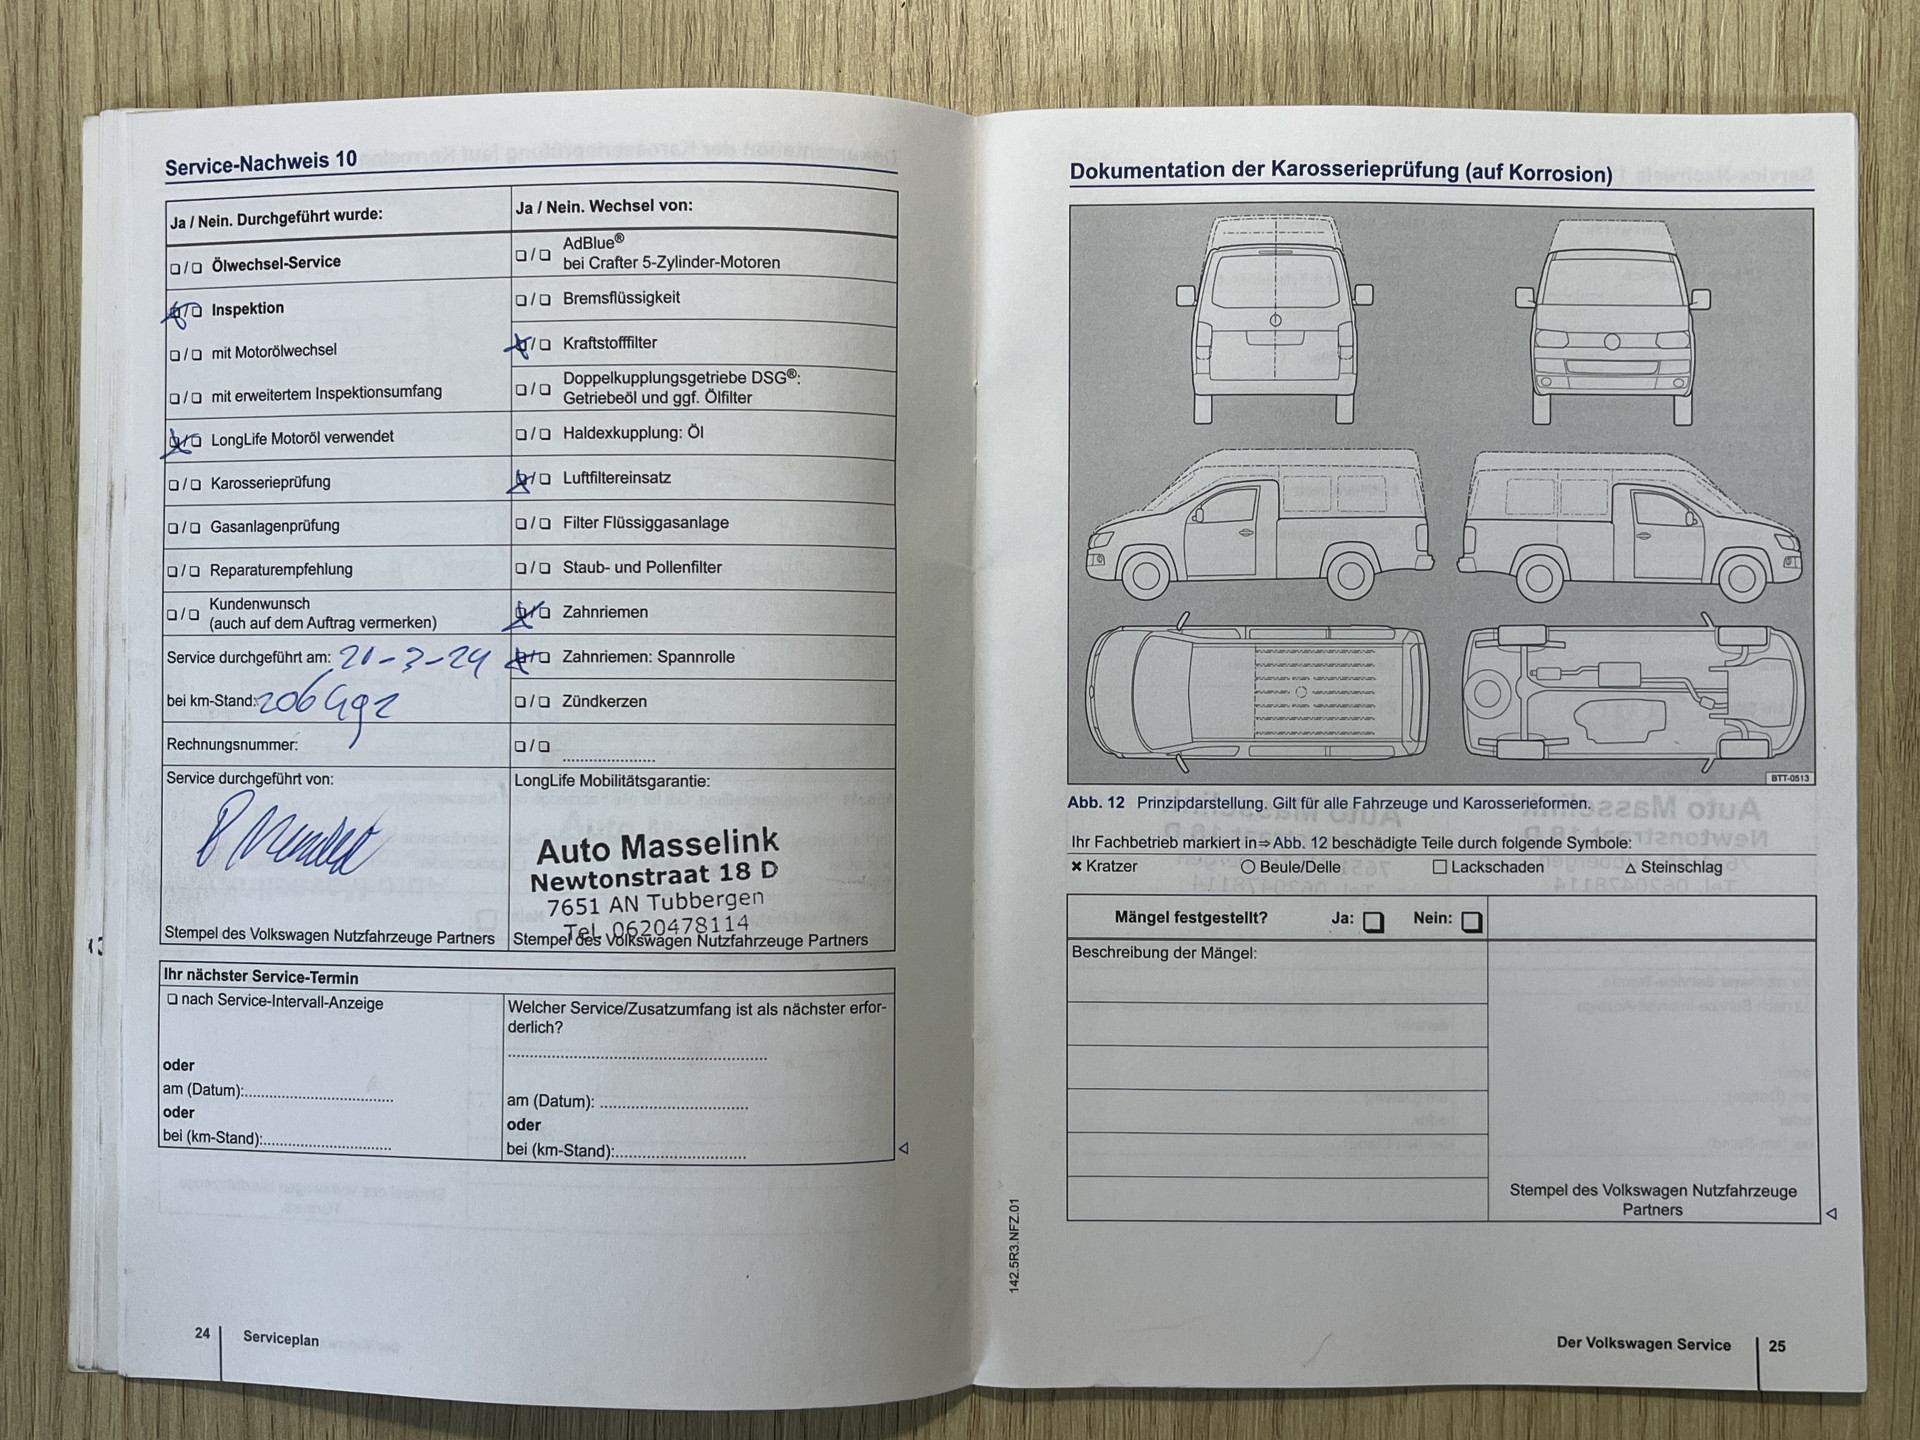 Service-Nachweis 10
Ja / Nein. Durchgeführt wurde:
Ölwechsel-Service
Inspektion
mit Motorölwechsel
mit erweitertem Inspektionsumfang
LongLife Motoröl verwendet
Karosserieprüfung
Gasanlagenprüfung
Reparaturempfehlung
Kundenwunsch
(auch auf dem Auftrag vermerken)
Service durchgeführt am: 21-3-24
bei km-Stand:
Rechnungsnummer:
Service durchgeführt von:
Stempel des Volkswagen Nutzfahrzeuge Partners
Ja / Nein. Wechsel von:
AdBlue®
bei Crafter 5-Zylinder-Motoren
Bremsflüssigkeit
Kraftstofffilter
Doppelkupplungsgetriebe DSG®:
Getriebeöl und ggf. Ölfilter
Haldexkupplung: Öl
Luftfiltereinsatz
Filter Flüssiggasanlage
Staub- und Pollenfilter
Zahnriemen
Zahnriemen: Spannrolle
Zündkerzen
LongLife Mobilitätsgarantie:
Auto Masselink
Newtonstraat 18 D
7651 AN Tubbergen
Tel. 0620478114
Stempel des Volkswagen Nutzfahrzeuge Partners
Ihr nächster Service-Termin
nach Service-Intervall-Anzeige
oder
am (Datum):
oder
bei (km-Stand):
Welcher Service/Zusatzumfang ist als nächster erfor-
derlich?
am (Datum):
oder
bei (km-Stand):
24 Serviceplan
Dokumentation der Karosserieprüfung (auf Korrosion)
BTT-0513
Abb. 12 Prinzipdarstellung. Gilt für alle Fahrzeuge und Karosserieformen.
Ihr Fachbetrieb markiert in ⇒ Abb. 12 beschädigte Teile durch folgende Symbole:
× Kratzer ○ Beule/Delle □ Lackschaden △ Steinschlag
Mängel festgestellt? Ja: Nein:
Beschreibung der Mängel:
Stempel des Volkswagen Nutzfahrzeuge
Partners
142.5R3.NFZ.01
Der Volkswagen Service 25